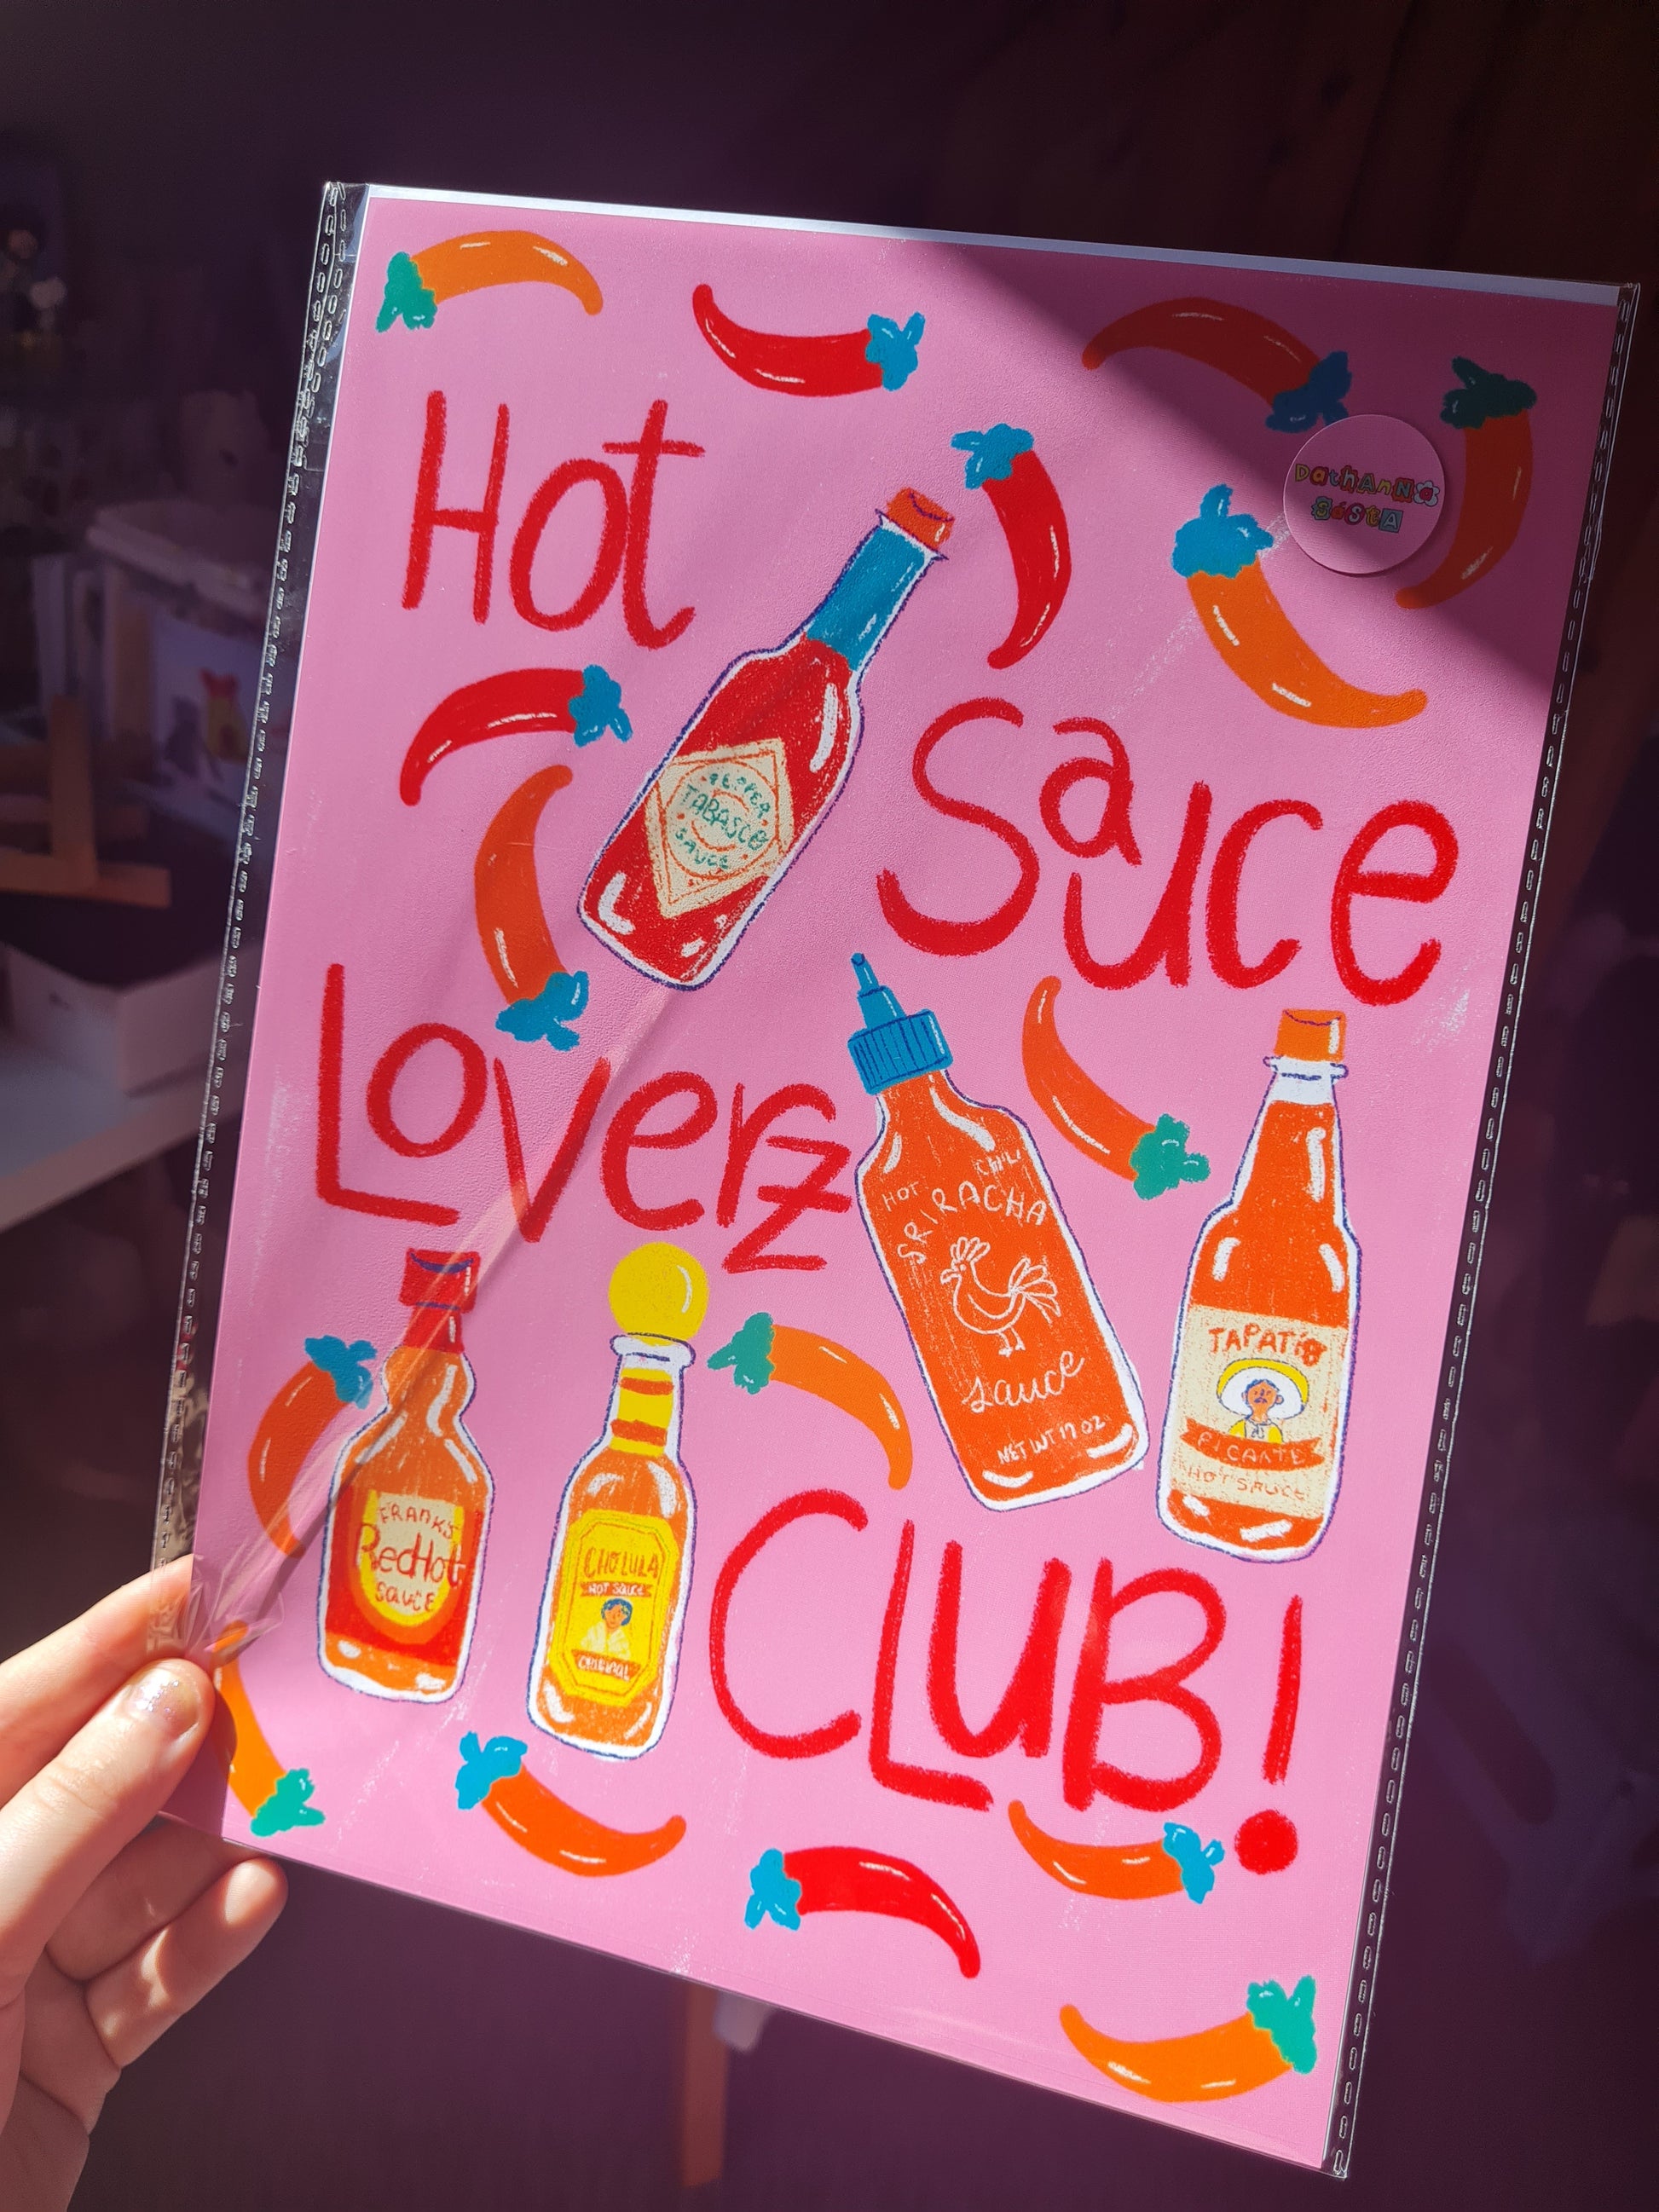 Hot
DathAnNa
GóStA
PEPPER
TABASCO
SAUCE
Sauce
Loverz
HOT CHILI
SRIRACHA
Sauce
NET WT 17 OZ
TAPATíO
PICANTE
HOT SAUCE
FRANK'S
RedHot
SAUCE
CHOLULA
HOT SAUCE
ORIGINAL
CLUB!